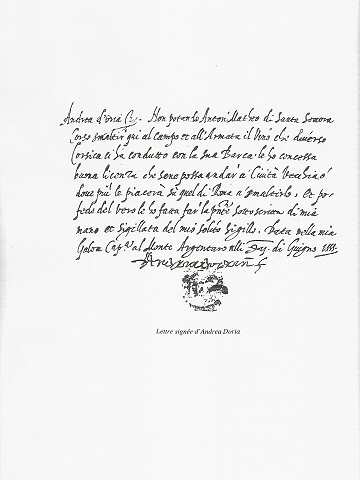 Andrea d'oria Cº. Non potendo Antoni Matheo di Santa
Corso smaltir qui al campo et all'Armata il Vino che
Corsica ci hà condutto con la sua Barca, le ho concessa
buona licenza che sene possa andar à Civita Vecchia o
dove più le piacerà à smaltirlo, Et
fede del vero le ho fatta far la sotto scritta di mia
mano et sigillata del mio solito sigillo. Data nella mia
Galea Cap.ª al Monte Argentaro alli di Giugno
Lettre signée d'Andrea Doria